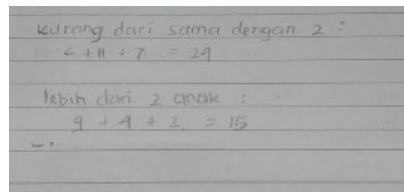 kurang dari sama dengan 2 :
6 + 11 + 7 = 24
lebih dari 2 anak :
9 + 4 + 2 = 15